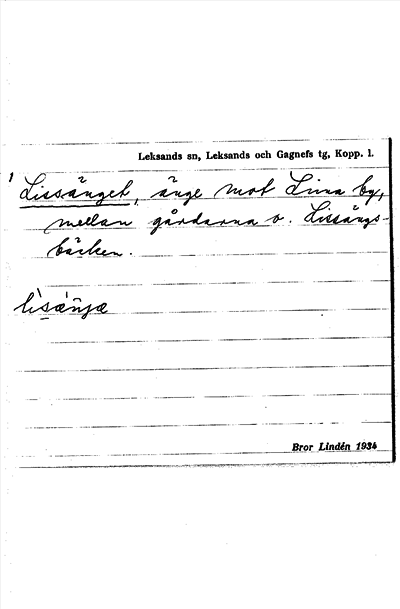 Leksands sn, Leksands och Gagnefs tg, Kopp. l.
1 Lissänget, änge mot Lima by,
mellan gårdarna o. Lissängs-
bäcken.
lisæŋæ
Bror Lindén 1934